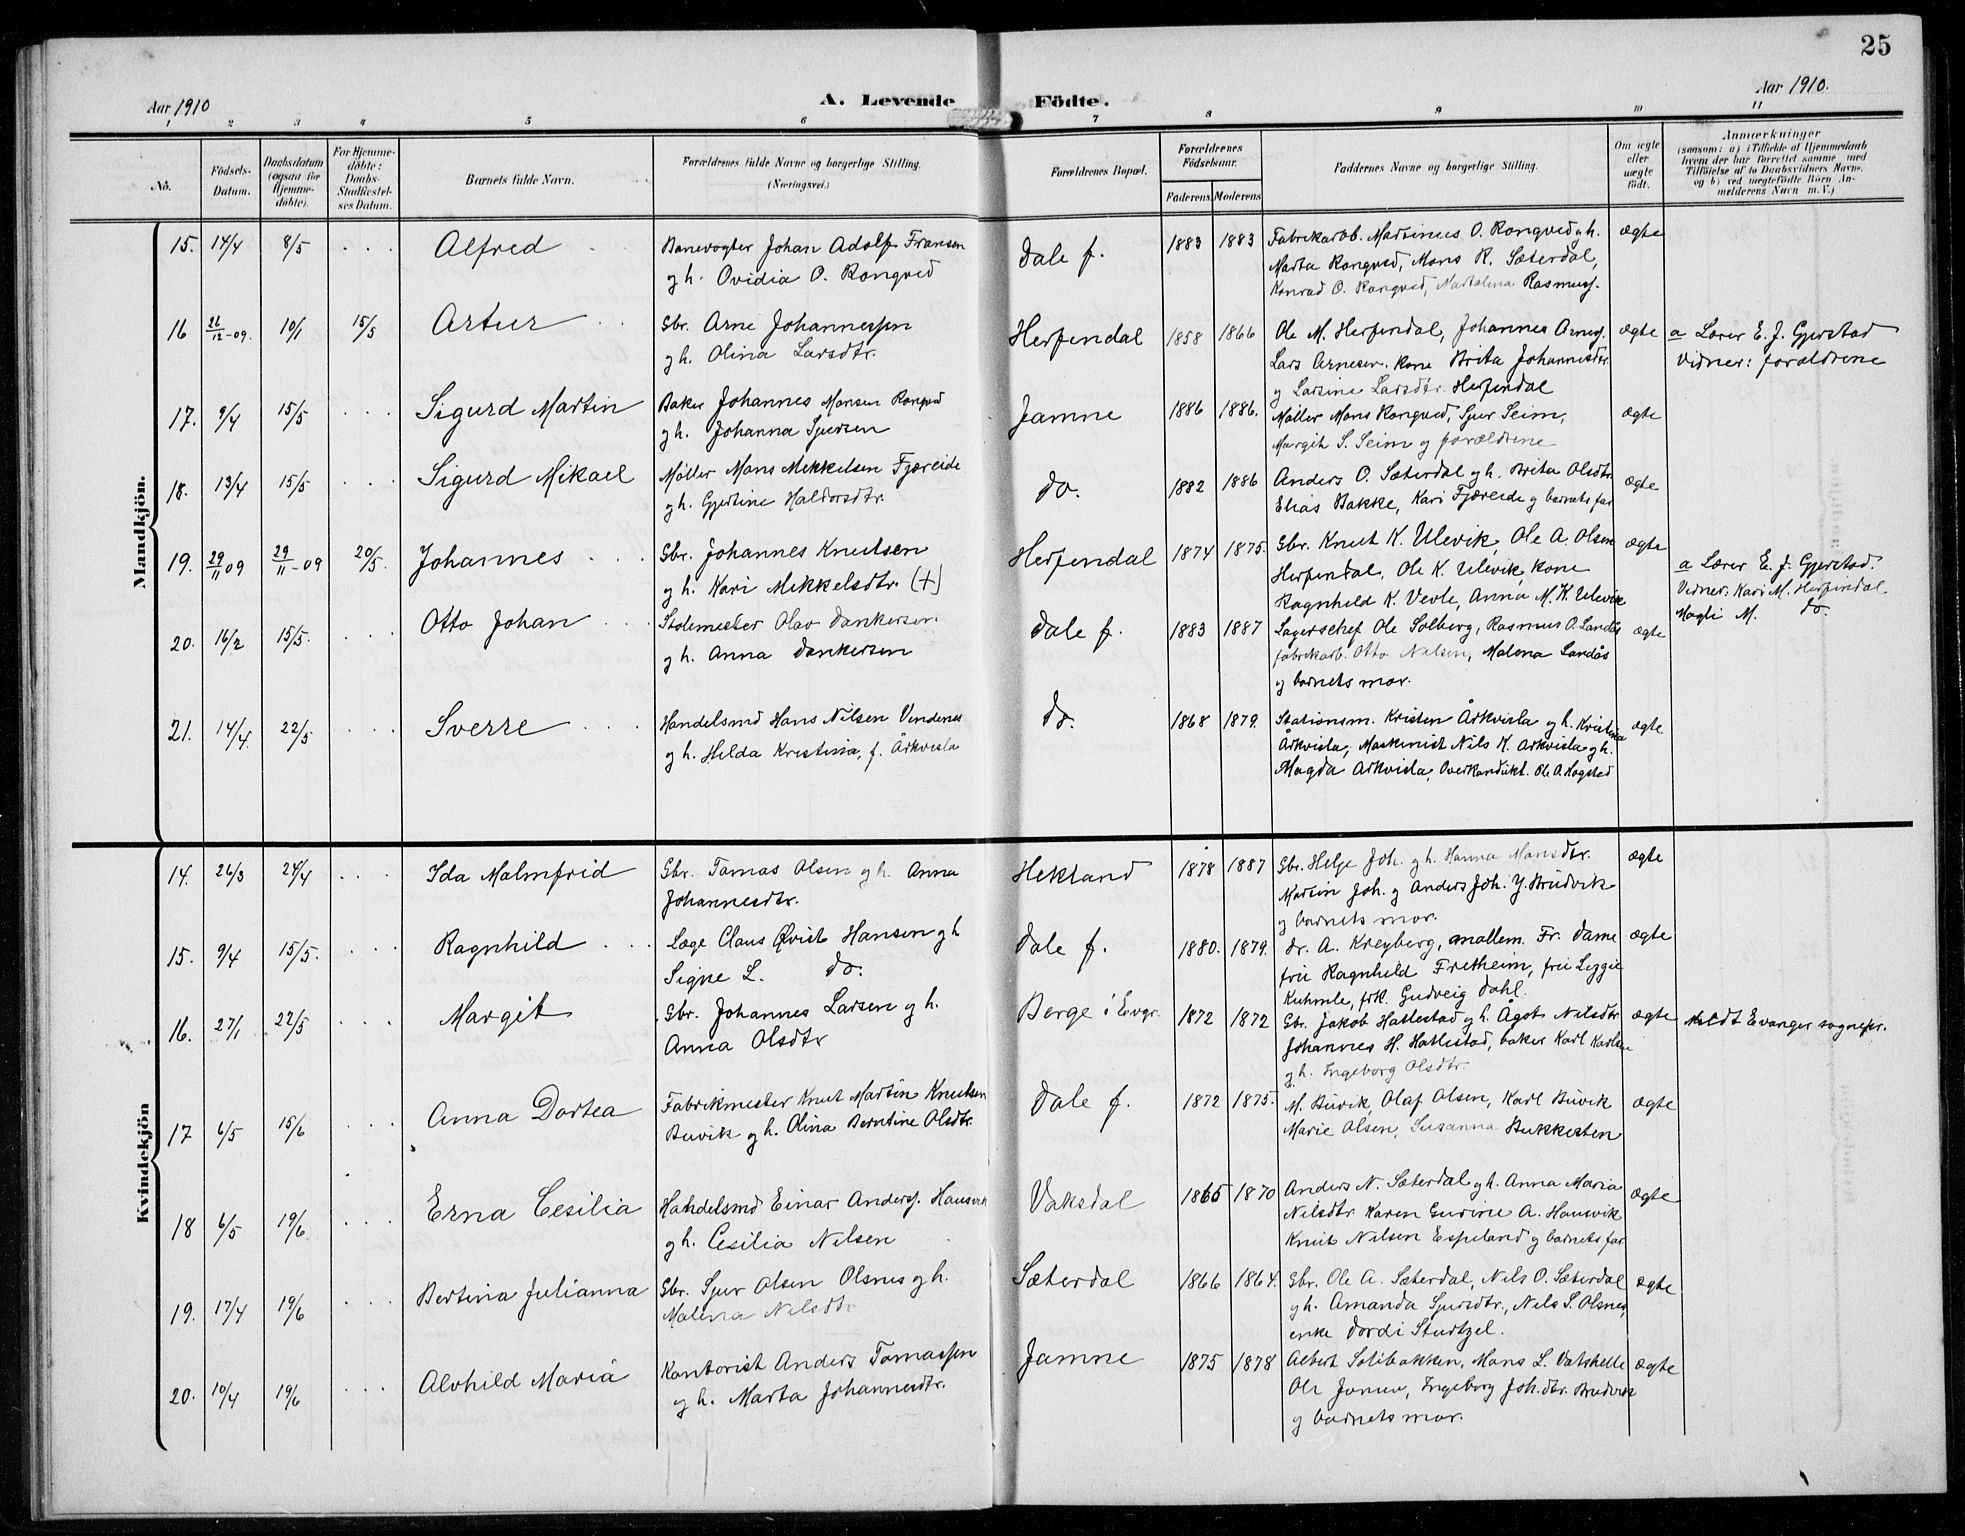 25
Aar 1910
A. Levende
Födte.
Aar 1910.
1 2 3 4 5 6 7 8 9 10 11
No.
Födsels-
Datum.
Daabsdatum
(ogsaa for
Hjemme-
döbte).
For Hjemme-
döbte:
Daabs-
Stadfæstel-
ses Datum.
Barnets fulde Navn.
Forældrenes fulde Navne og borgerlige Stilling.
(Næringsvei.)
Forældrenes Bopæl.
Forældrenes
Födselsaar.
Faderens. Moderens.
Faddernes Navne og borgerlige Stilling.
Om ægte
eller
uægte
födt.
Anmærkninger
(saasom: a) i Tilfælde af Hjemmedaab
hvem der har forrettet samme med
Tilföielse af to Daabsvidners Navne,
og b) ved uægtefödte Börn An-
melderens Navn m. V.)
Mandkjön.
15. 14/4 8/5 Alfred
Banevogter Johan Adolf Fransen
g h. Ovidia O. Rongved
Dale f. 1883 1883
Fabrikarbb. Martinus O. Rongved g h.
Marta Rongved, Mons R. Sæterdal,
Konrad O. Rongved, Rasmusj.
ægte
16 26/12-09. 10/1 15/5 Artur
Gbr. Arne Johannessen
g h. Olina Larsdtr.
Herfendal 1858 1866
Ole M. Herfendal, Johannes Arnesj.
Lars Arnesen. kone Brita Johannesdtr
g Larsine Larsdtr. Herfendal
ægte
a Lærer E. J. Gjerstad
Vidner: forældrene
17. 9/4 15/5 Sigurd Martin
Baker Johannes Monsen Rongved
g h. Johanna Sjursen
Jamne 1886 1886.
Møller Mons Rongved, Sjur Seim,
Margit S. Seim g forældrene
ægte
18. 13/4 15/5 Sigurd Mikael
Møller Mons Mikkelsen Fjæreide
g h. Gjertine Haldorsdtr.
do. 1882 1886
Anders O. Sæterdal g h. Brita Olsdtr.
Elias Bakke, Kari Fjæreide g barnets far
ægte
19. 29/11 09 29/11-09 20/5. Johannes
Gbr. Johannes Knutsen
g h. Kari Mikkelsdtr. (+)
Herfendal 1874 1875.
Gbr. Knut K. Ulevik, Ole A. Olsen
Herfendal, Ole K. Ulevik, kone
Ragnhild K. Vevle, Anna M. K. Ulevik
ægte
a Lærer E. J. Gjerstad.
Vidner: Kari M. Herfindal.
Magli M. do.
20. 16/2 15/5. Otto Johan
Stolemester Olav Dankersen.
g h. Anna Dankersen
Dale f. 1883 1887
Lagerschef Ole Solberg, Rasmus O. Landås
fabrikarb. Otto Nilsen, Malena Landås
g barnets mor.
ægte
21. 14/4. 22/5 Sverre
Handelsmd Hans Nilsen Vindenes
g h. Hilda Kristina, f. Årkvisla
do. 1868 1879.
Stationsm. Kristen Årkvisla g h. Kristina
Årkvisla, Maskinist Nils K. Arkvisla g h.
Magda Arkvisla, Overkondukt. Ole A. Hogstad
ægte
Kvindekjön
14. 26/3 24/4 Ida Malmfrid
Gbr. Tomas Olsen g h. Anna
Johannesdtr.
Hekland 1878 1887
Gbr. Helge Joh. g h. Hanna Monsdtr.
Martin Joh. g Anders Joh. Y. Brudvik
g barnets mor.
ægte
15. 9/4 15/5. Ragnhild
Læge Claus Qvist Hansen g h
Signe L. do.
Dale f. 1880. 1879.
dr. A. Kreyberg, Fr. Dame
frü Ragnhild Fretheim, frü Lizzie
Kuhmle, frk. Gudveig Dahl.
ægte
16. 27/1 22/5 Margit
Gbr. Johannes Larsen g h.
Anna Olsdtr
Berge i Evgr. 1872 1872
Gbr. Jakob Hatlestad g h. Ågot Nilsdtr
Johannes H. Hatlestad, baker Karl Karlsen
g h. Ingeborg Olsdtr.
ægte
Mældt Evanger sognepr.
17 6/5 15/6 Anna Dortea
Fabrikmester Knut Martin Knutsen
Buvik g h. Olina Berntine Olsdtr.
Dale f. 1872 1875.
M. Buvik, Olaf Olsen, Karl Buvik
Marie Olsen, Susanna Bukkesten
ægte
18 6/5 19/6 Erna Cesilia
Handelsmd Einar Andersj. Hausvik
g h. Cesilia Nilsen
Vaksdal 1865 1870
Anders N. Sæterdal g h. Anna Maria
Nilsdtr Karen Gurine A. Hausvik
Knut Nilsen Espeland g barnets far
ægte
19. 17/4 19/6 Bertina Julianna
Gbr. Sjur Olsen Olsnes g h.
Malena Nilsdtr
Sæterdal 1866 1864.
Gbr. Ole A. Sæterdal, Nils O. Sæterdal
g h. Amanda Sjursdtr., Nils S. Olsnes,
enke Dordi Sturtzel.
ægte
20. 10/4 19/6 Alvhild Maria
Kontorist Anders Tomassen
g h. Marta Johannesdtr.
Jamne 1875 1878
Albert Solibakken, Mons L. Vatshelle
Ole Jamne, Ingeborg Joh.dtr. Brudvik
g barnets mor.
ægte